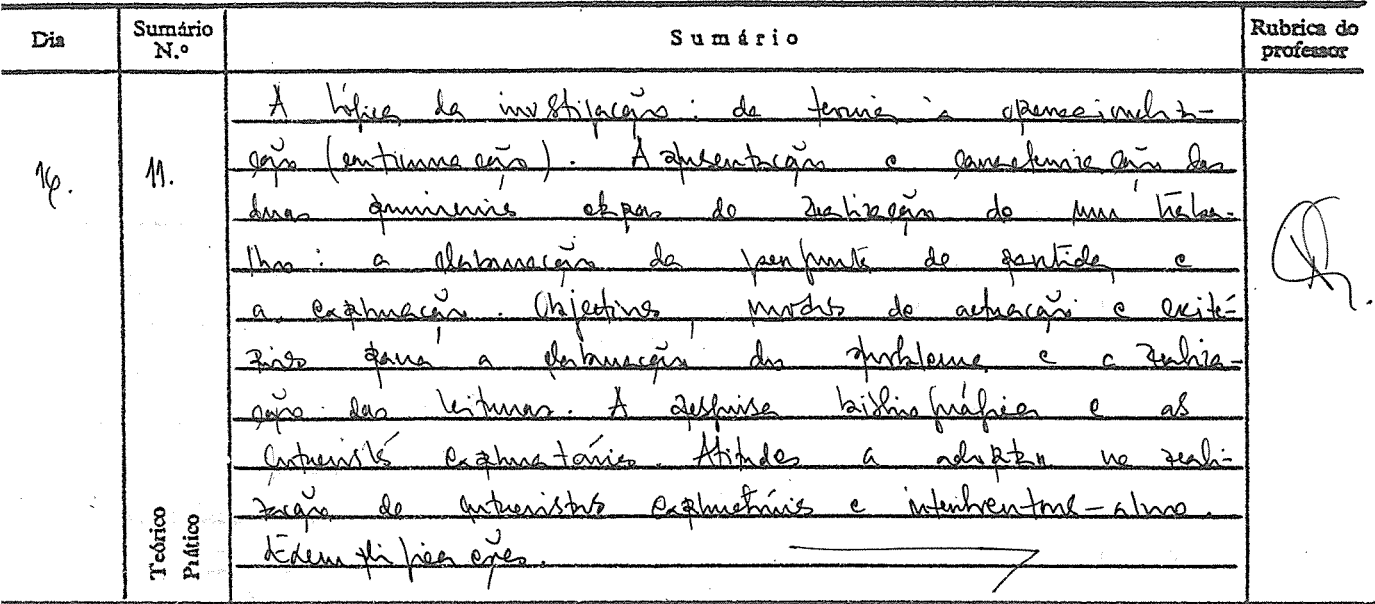 Dia
Sumário N.º
Sumário
Rubrica do professor
16.
11.
A lógica da investigação: da teoria à operacionaliza-
ção (continuação). A apresentação e caracterização das
duas primeiras etapas de realização de um traba-
lho: a elaboração da pergunta de partida e
a exploração. Objectivos, modos de actuação e crité-
rios para a elaboração do problema e a realiza-
ção das leituras. A pesquisa bibliográfica e as
entrevistas exploratórias. Atitudes a adoptar na reali-
zação de entrevistas exploratórias e interlocutores-alvo.
Exemplificações.
Teórico
Prático